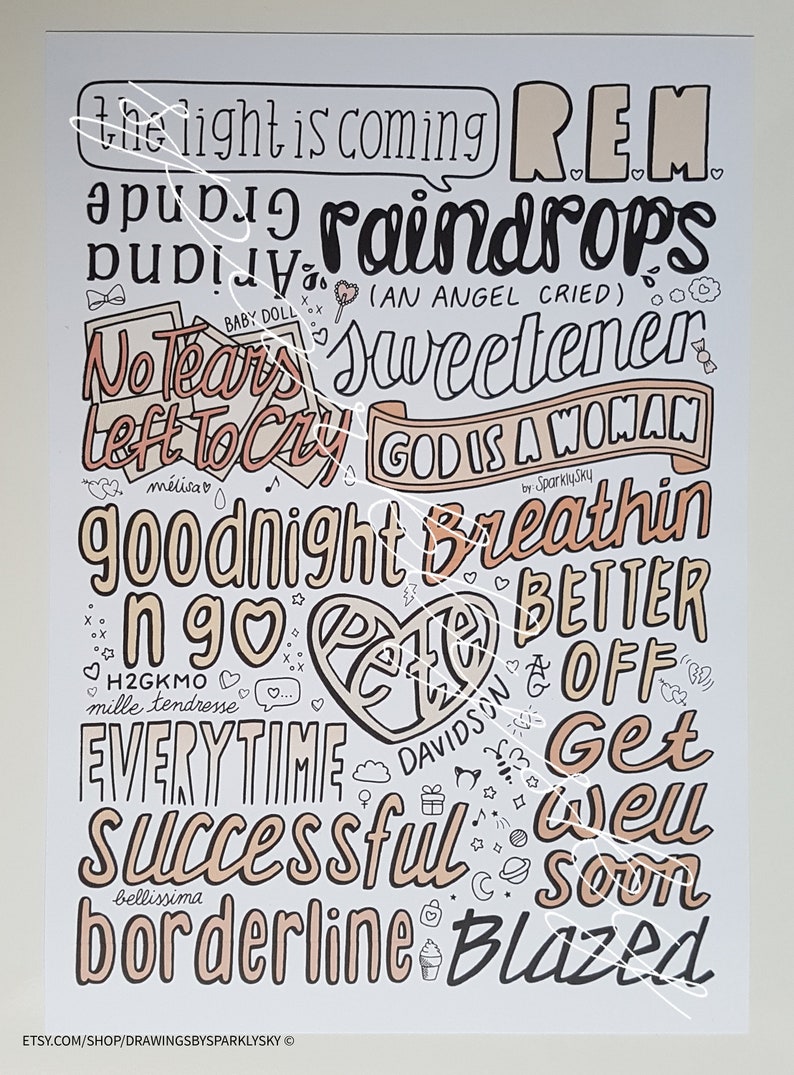 the light is coming
R.E.M.
Ariana
Grande
raindrops
(AN ANGEL CRIED)
BABY DOLL
sweetener
No Tears
Left To Cry
GOD IS A WOMAN
mélisa
by: SparklySky
goodnight
n go
Breathin
BETTER
OFF
Pete
DAVIDSON
AG
H2GKMO
mille tendresse
EVERYTIME
Get
well
soon
successful
bellissima
borderline
Blazed
ETSY.COM/SHOP/DRAWINGSBYSPARKLYSKY ©